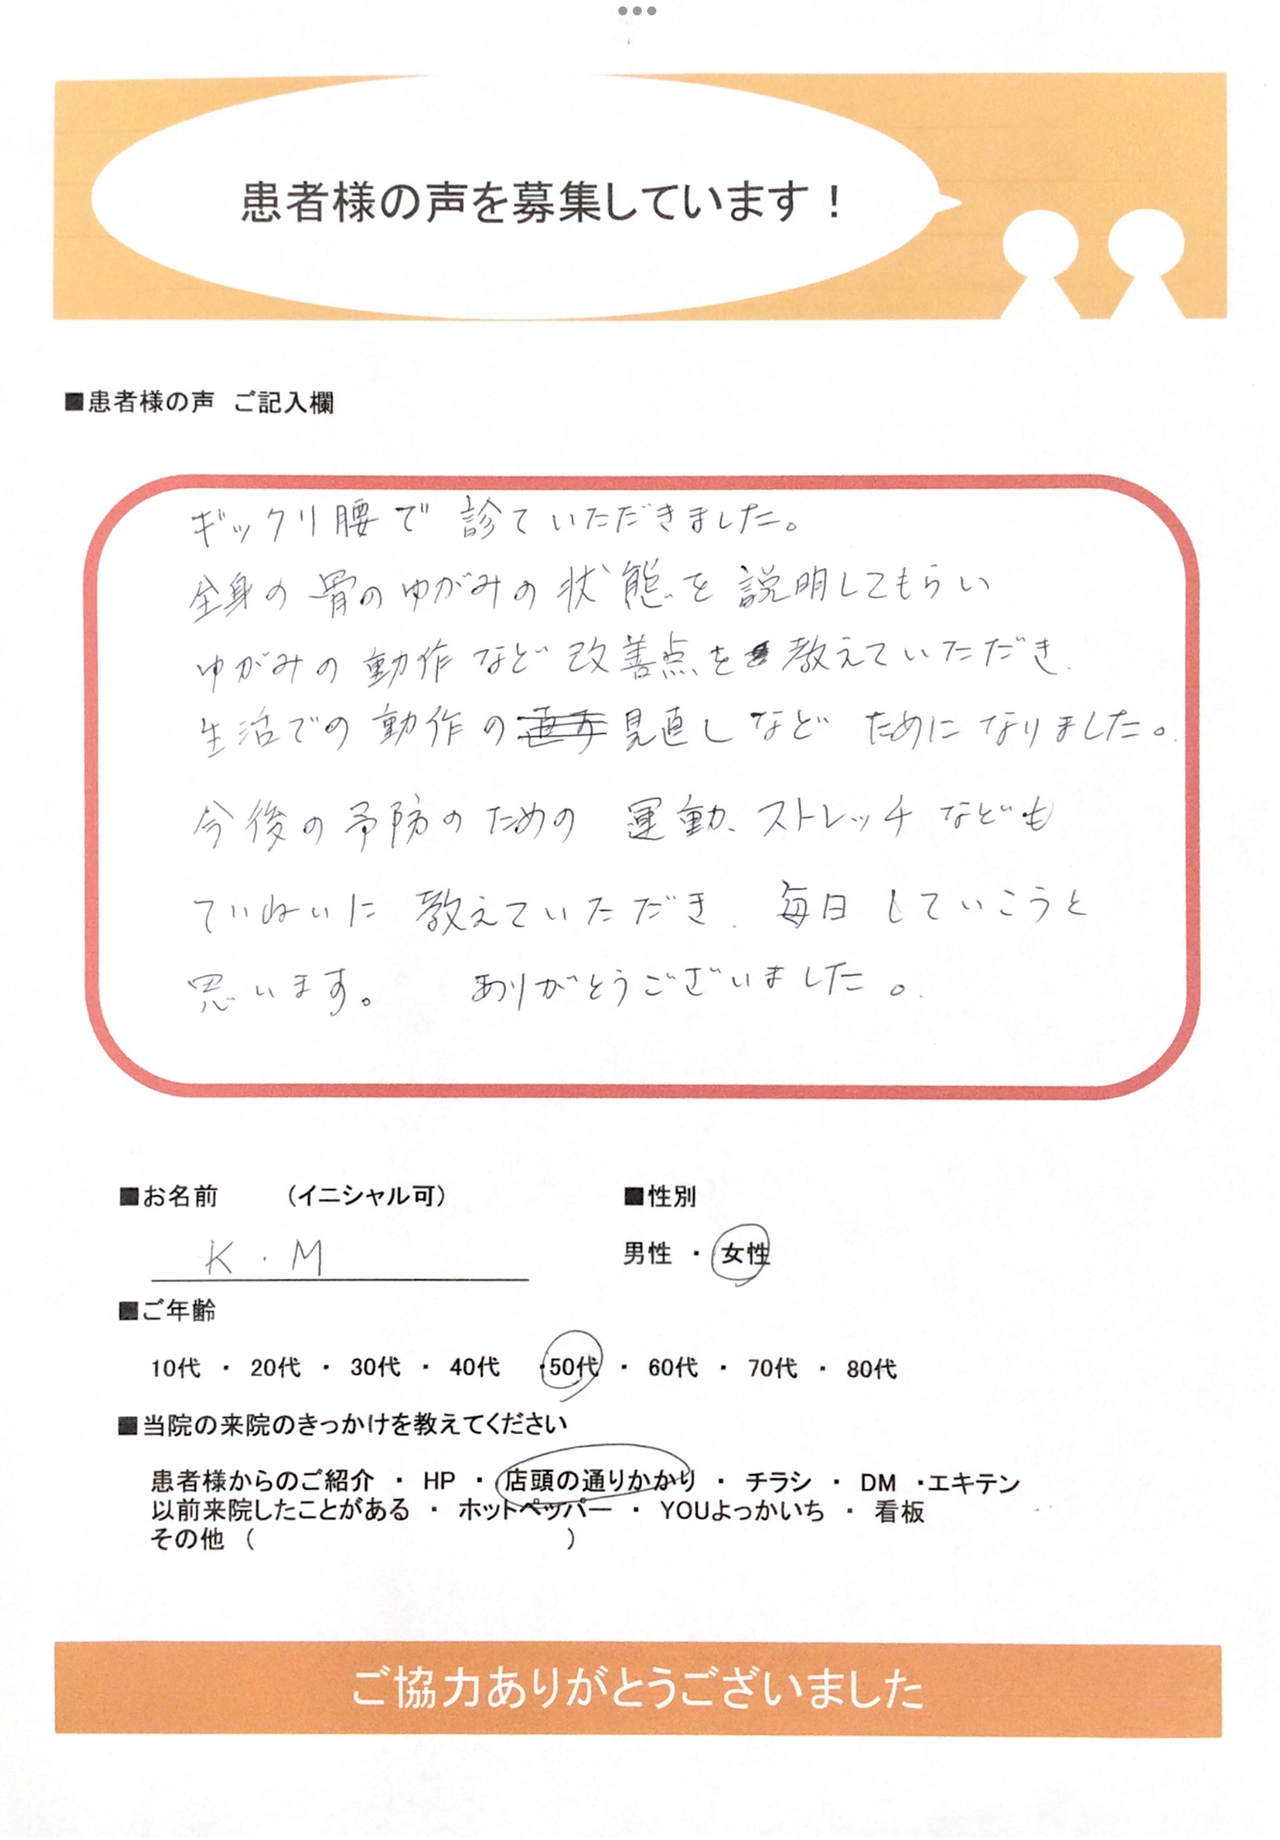 患者様の声を募集しています！
■患者様の声 ご記入欄
ギックリ腰で 診ていただきました。
全身の骨のゆがみの状態を説明してもらい
ゆがみの動作など改善点を教えていただき、
生活での動作の見直しなど ためになりました。
今後の予防のための 運動、ストレッチなども
ていねいに 教えていただき、毎日していこうと
思います。 ありがとうございました。
■お名前 （イニシャル可） ■性別
K・M 男性 ・ 女性
■ご年齢
10代 ・ 20代 ・ 30代 ・ 40代 ・50代 ・ 60代 ・ 70代 ・ 80代
■当院の来院のきっかけを教えてください
患者様からのご紹介 ・ HP ・ 店頭の通りかかり ・ チラシ ・ DM ・エキテン
以前来院したことがある ・ ホットペッパー ・ YOUよっかいち ・ 看板
その他 （ ）
ご協力ありがとうございました